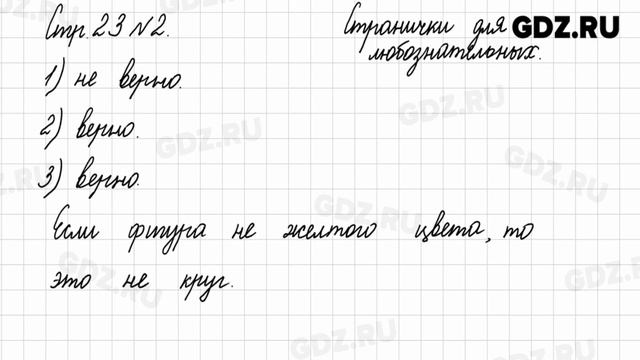 Стр. 23 №2.
Странички для
любознательных.
GDZ.RU
1) не верно.
2) верно.
3) верно.
Если фигура не желтого цвета, то
это не круг.
GDZ.RU
GDZ.RU
GDZ.RU
GDZ.RU
GDZ.RU
GDZ.RU